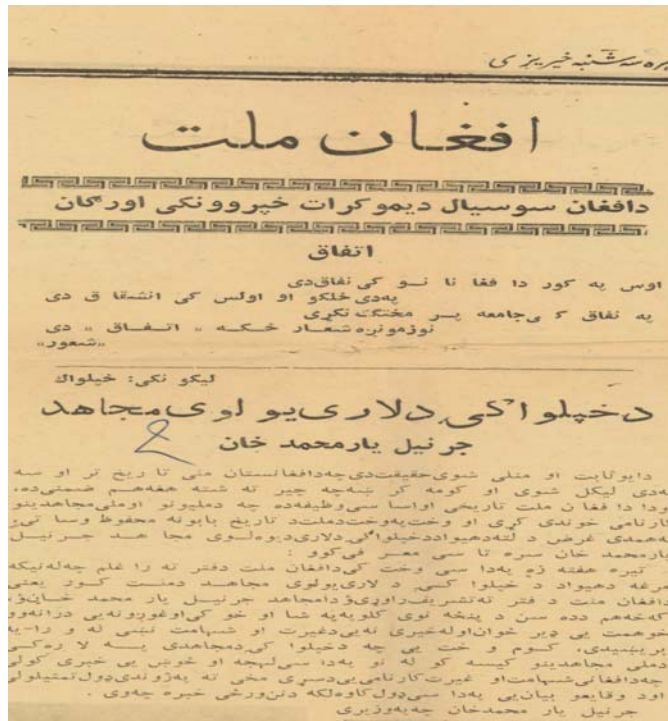 هره سه شنبه خپریزی
افغان ملت
دافغان سوسیال دیموکرات خپروونکی اورگان
اتفاق
اوس په کور دا فغا نا نو کی نفاق دی
په دی خلکو او اولس کی انشقا ق دی
په نفاق ک ی جامعه پر مختگ نکړی
نوزمونږه شعار خکه « اتفاق » دی
«شعور»
لیکو نکی: خپلواک
د خپلوا کی دلاری یو لوی مجاهد
جرنیل یارمحمد خان
دایو ثابت او منلی شوی حقیقت دی چه دافغانستان ملی تا ریخ تر او سه
نه دی لیکل شوی او کومه کر ښه چه چیر ته شته هغه هم ضمنی ده.
دا افغان ملت تاریخی اوسا سی وظیفه ده چه دملیونو اوملی مجاهدینو
کارنامی خوندی کړی او وخت په وخت دملت د تاریخ بابونه محفوظ وسا تی.
په همدی غرض د لته دهیواد دخپلواکی دلاری دیوه لوی مجا هد جرنیل
یارمحمد خان سره تا سی معر فی کوو :
تیره هفته زه په دا سی وخت کی دافغان ملت دفتر ته را غلم چه له نیکه
مرغه دهیواد د خپلوا کی د لاری یولوی مجاهد دملت کور یعنی
دافغان ملت د فتر ته تشریف راوړی ؤ دامجاهد جرنیل یار محمد خان ؤ.
که څه هم دده سن د پنځه نوی کلو په شا او خو کی او غوږونه یی درانه وو
خوهمت یی ډیر خوان اوله خبری نه یی دغیرت او شهامت نښی له و را یه
بریښیدی. کسوم و خت یی چه دخپلوا کی دمجاهدی په لا ره کی
دملی مجاهدینو کیسه کو له نو په دا سی لهجه او خوښ یی خبری کولی
چه دافغانی شهامت او غیرت کارنامی یی دسړی مخی ته په ژوندی ډول تمثیلولی
اود وقایعو بیان یی په دا سی ډول کاوه لکه دنن ورځی خبره چه وی .
جرنیل یار محمدخان چه په وزیری